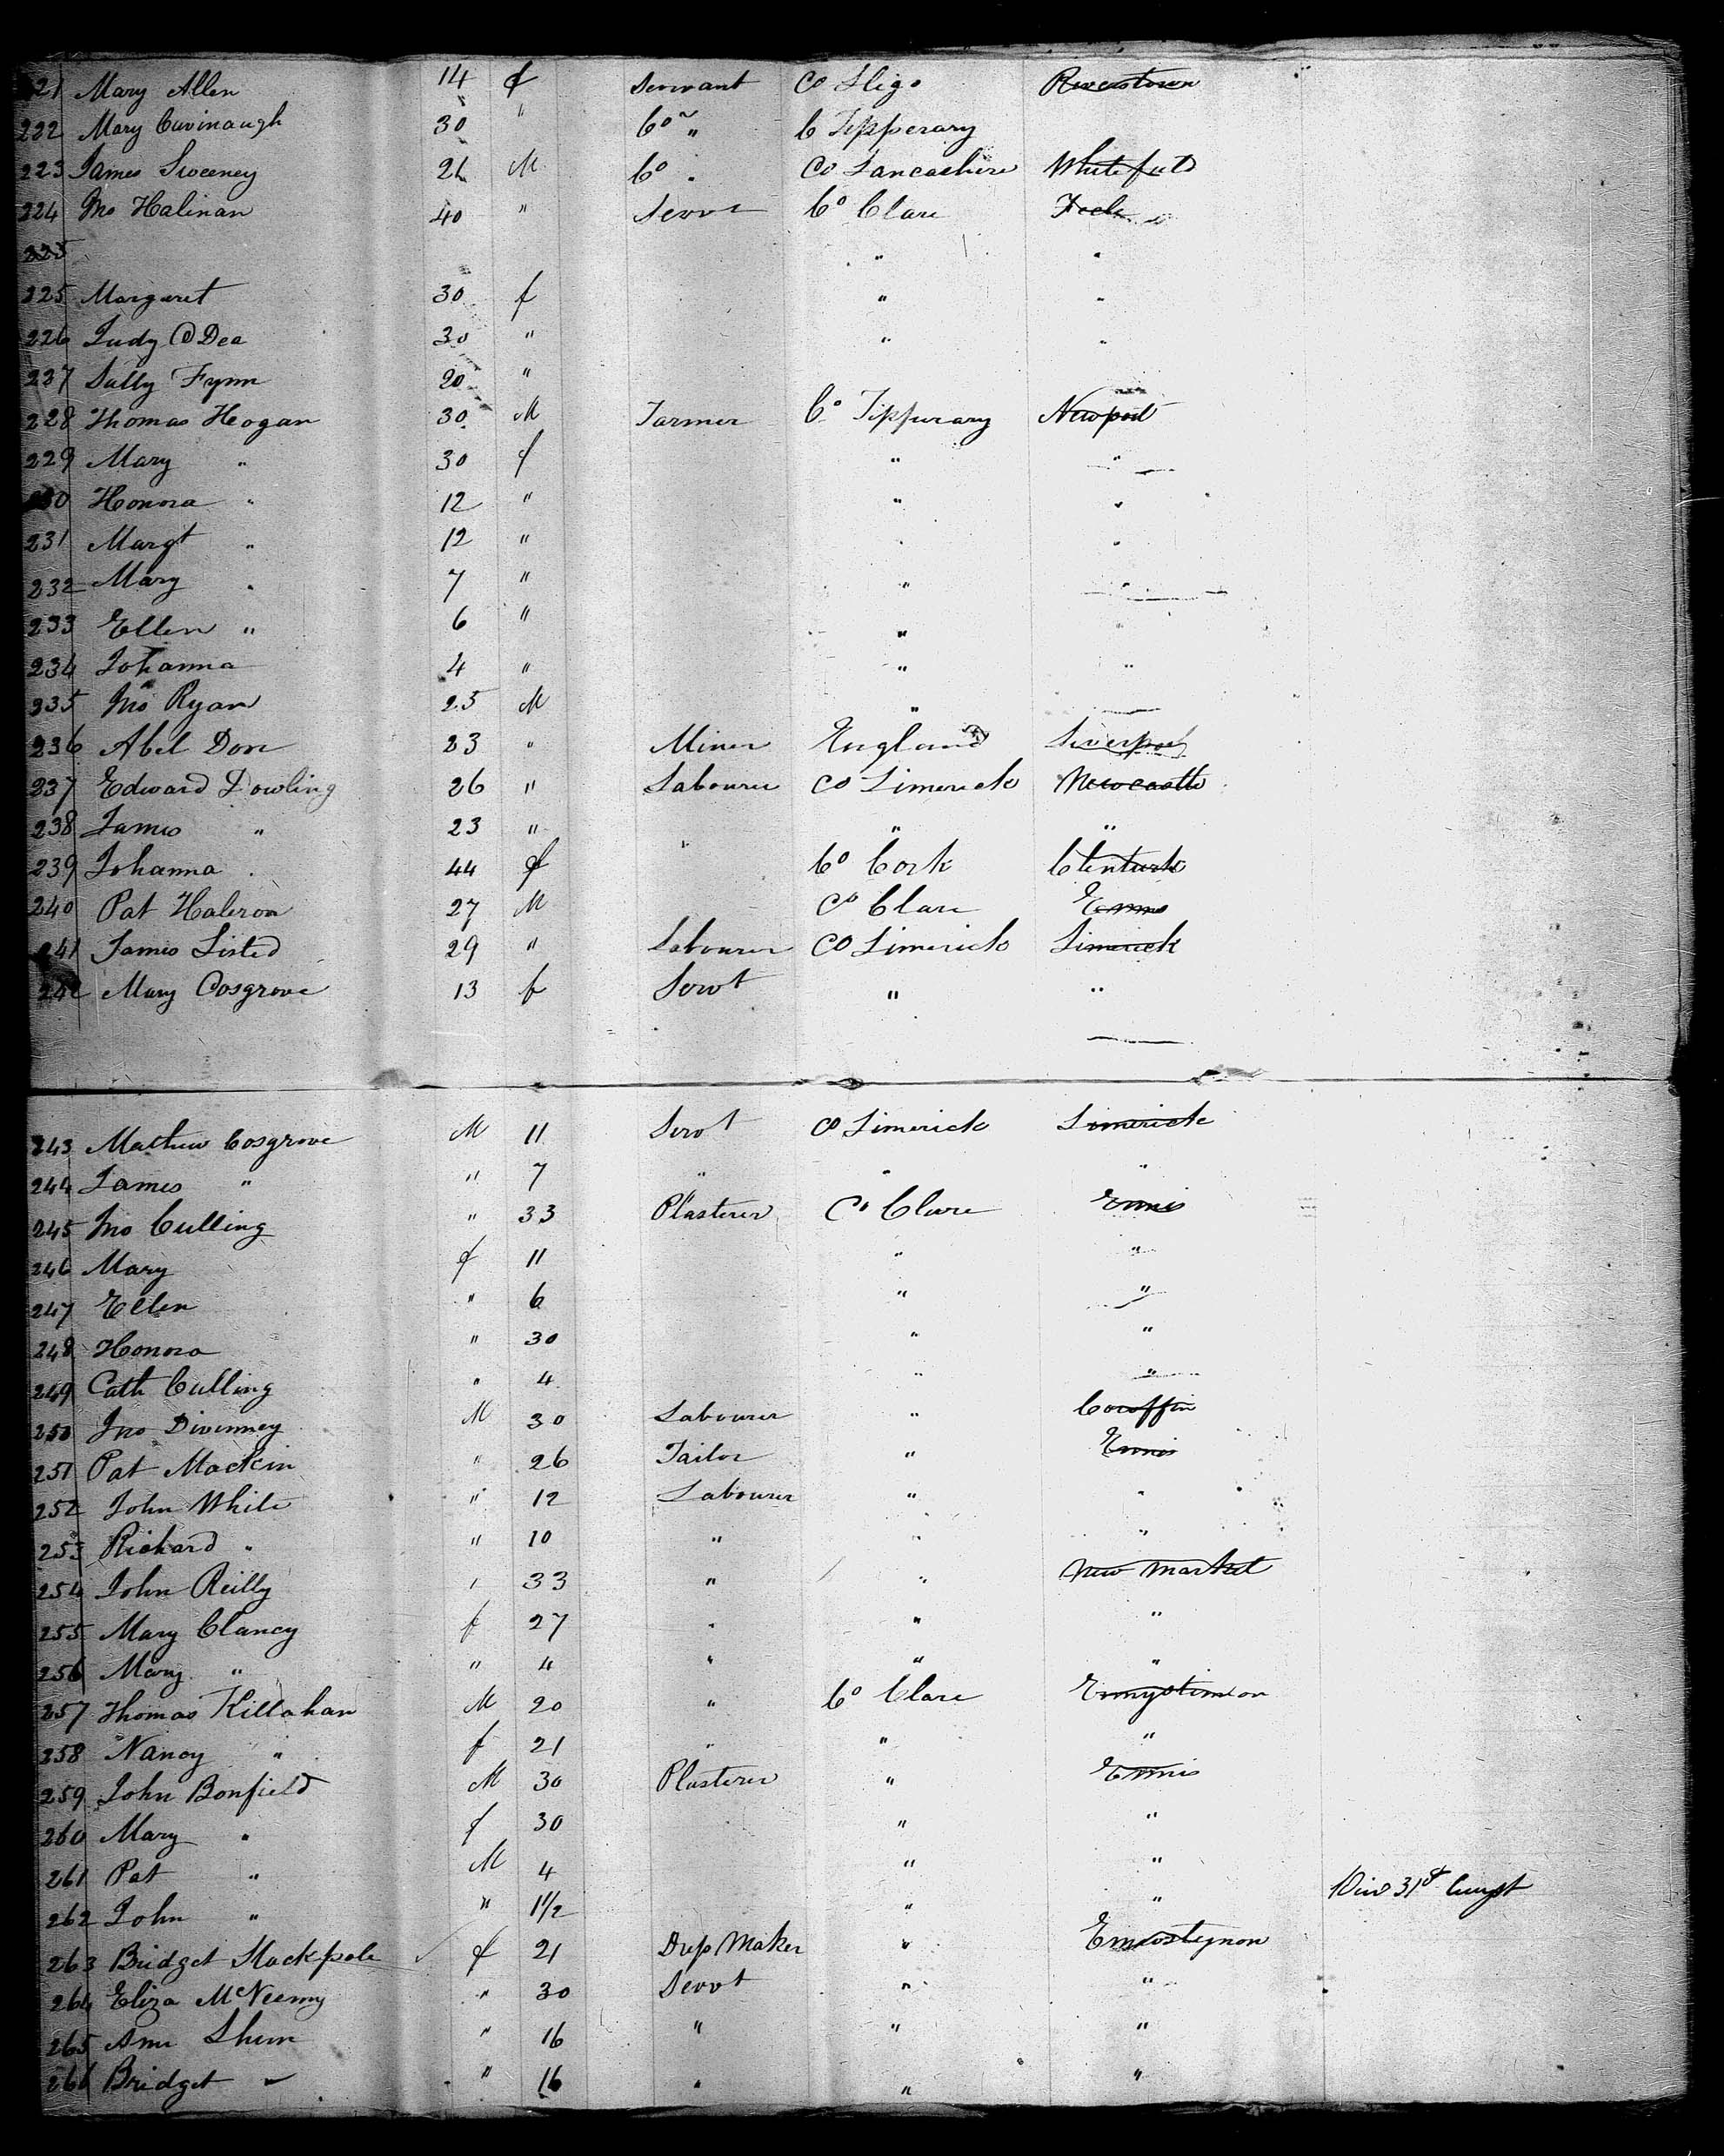 221 Mary Allen 14 f Servant Co Sligo Riverstown
222 Mary Cuvinaugh 30 " Co " C Tipperary
223 James Sweeney 26 M Co " Co Lancashire Whitefield
224 Jno Halinan 40 " Servt Co Clare
225 " "
225 Margaret 30 f " "
226 Judy O Dea 30 " " "
227 Sally Fynn 20 "
228 Thomas Hogan 30 M Farmer Co Tipperary Newport
229 Mary " 30 f " "
230 Honora " 12 " " "
231 Margt " 12 " " "
232 Mary " 7 " " "
233 Ellen " 6 " "
234 Johanna 4 " " "
235 Jno Ryan 25 M "
236 Abel Dorr 23 " Miner England Liverpool
237 Edward Dowling 26 " Labourer Co Limerick Newcastle
238 James " 23 " " " "
239 Johanna " 44 f Co Cork
240 Pat Haleron 27 M Co Clare Ennis
241 James Listed 29 " Labourer Co Limerick Limerick
242 Mary Cosgrove 13 f Servt " "
243 Mathew Cosgrove M 11 Servt Co Limerick Limerick
244 James " " 7 " " "
245 Jno Culling " 33 Plasterer Co Clare Ennis
246 Mary f 11 " "
247 Ellen " 6 " "
248 Honora " 30 " "
249 Cath Culling " 4 " "
250 Jno Divenney M 30 Labourer " Coroffin
251 Pat Mackin " 26 Tailor " Ennis
252 John White " 12 Labourer " "
253 Richard " " 10 " " "
254 John Reilly " 33 " " New Market
255 Mary Clancy f 27 " " "
256 Mary " " 4 " " "
257 Thomas Killahan M 20 " Co Clare Ennystimon
258 Nancy " f 21 " " "
259 John Bonfield M 30 Plasterer " Ennis
260 Mary " f 30 " "
261 Pat " M 4 " "
262 John " " 1½ " " Died 31st Augst
263 Bridget Stackpole f 21 Dress Maker "
264 Eliza McNeemy " 30 Servt " "
265 Ann Shun " 16 " " "
266 Bridget " " 16 " " "